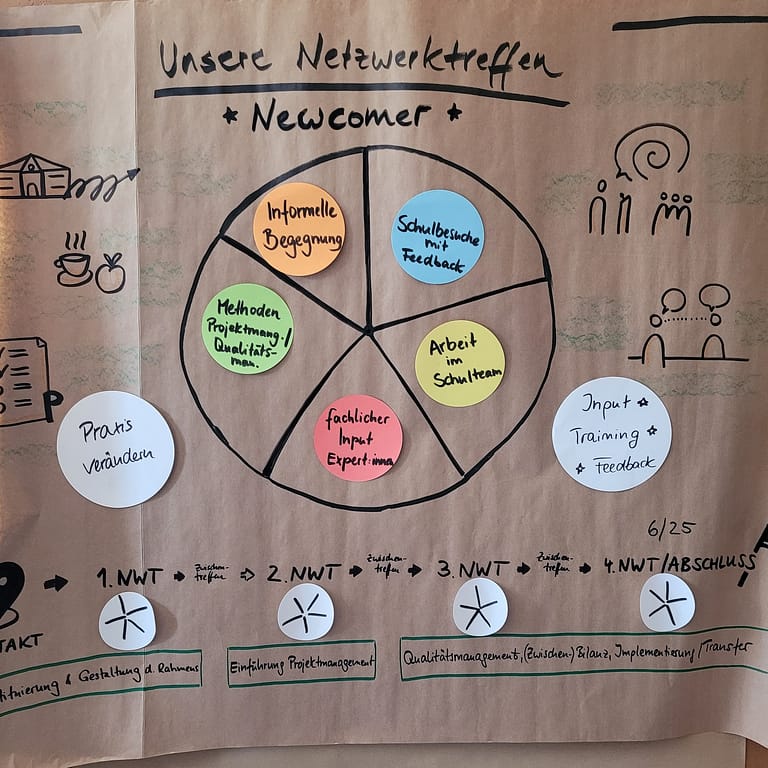 Unsere Netzwerktreffen
* Newcomer *
Informelle
Begegnung
Schulbesuche
mit
Feedback
Methoden
Projektmang./
Qualitäts-
man.
Arbeit
im
Schulteam
fachlicher
Input
Expert:innen
Praxis
verändern
Input
Training
Feedback
6/25
TAKT
1. NWT
Zwischen-
treffen
2. NWT
Zwischen-
treffen
3. NWT
Zwischen-
treffen
4. NWT/ABSCHLUSS
tituierung & Gestaltung d. Rahmens
Einführung Projektmanagement
Qualitätsmanagement, (Zwischen-) Bilanz, Implementierung/Transfer